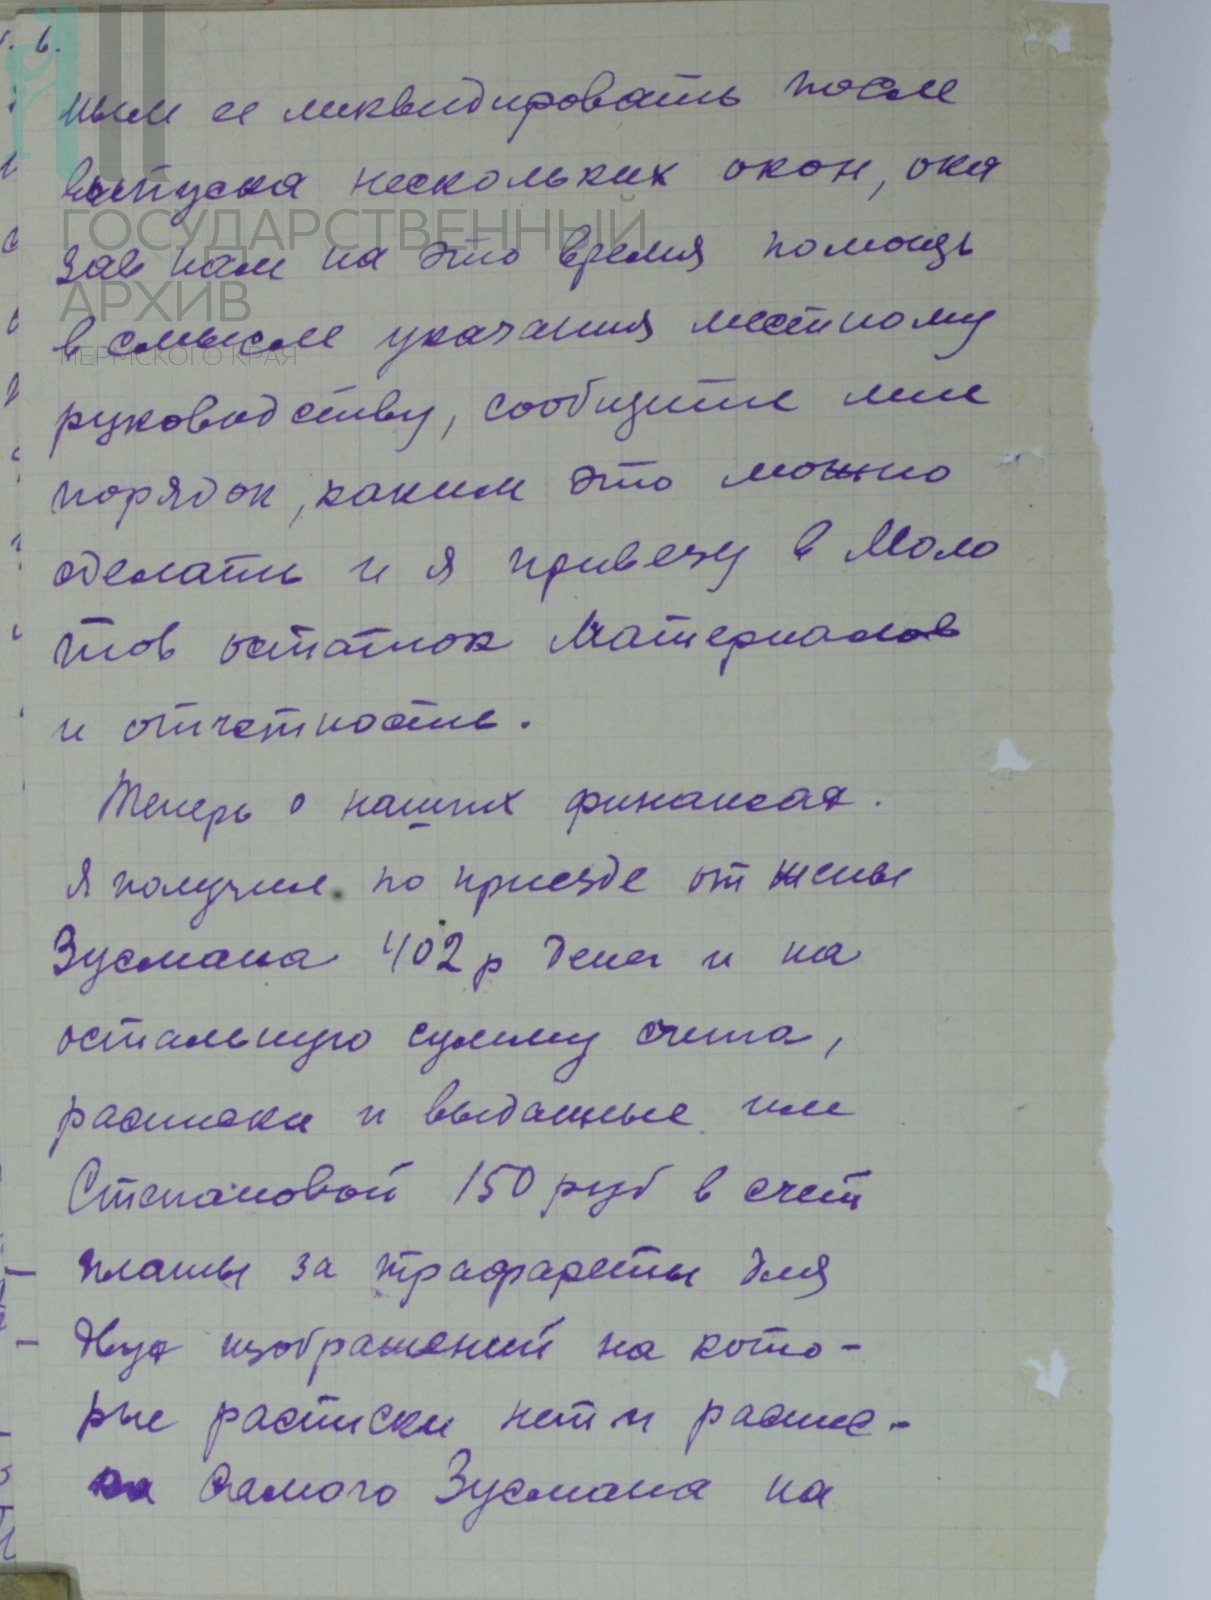 6.
ным ее ликвидировать после
выпуска нескольких окон, ока
зав нам на это время помощь
в смысле указания местному
руководству, сообщите мне
порядок, каким это можно
сделать и я привезу в Моло
тов остаток материалов
и отчетность.
Теперь о наших финансах.
Я получил по приезде от жены
Зусмана 402 р денег и на
остальную сумму счета,
расписки и выданные им
Степановой 150 руб в счет
платы за трафареты для
двух изображений на кото-
рые расписки нет и распис-
ка самого Зусмана на
ГОСУДАРСТВЕННЫЙ
АРХИВ
ПЕРМСКОГО КРАЯ